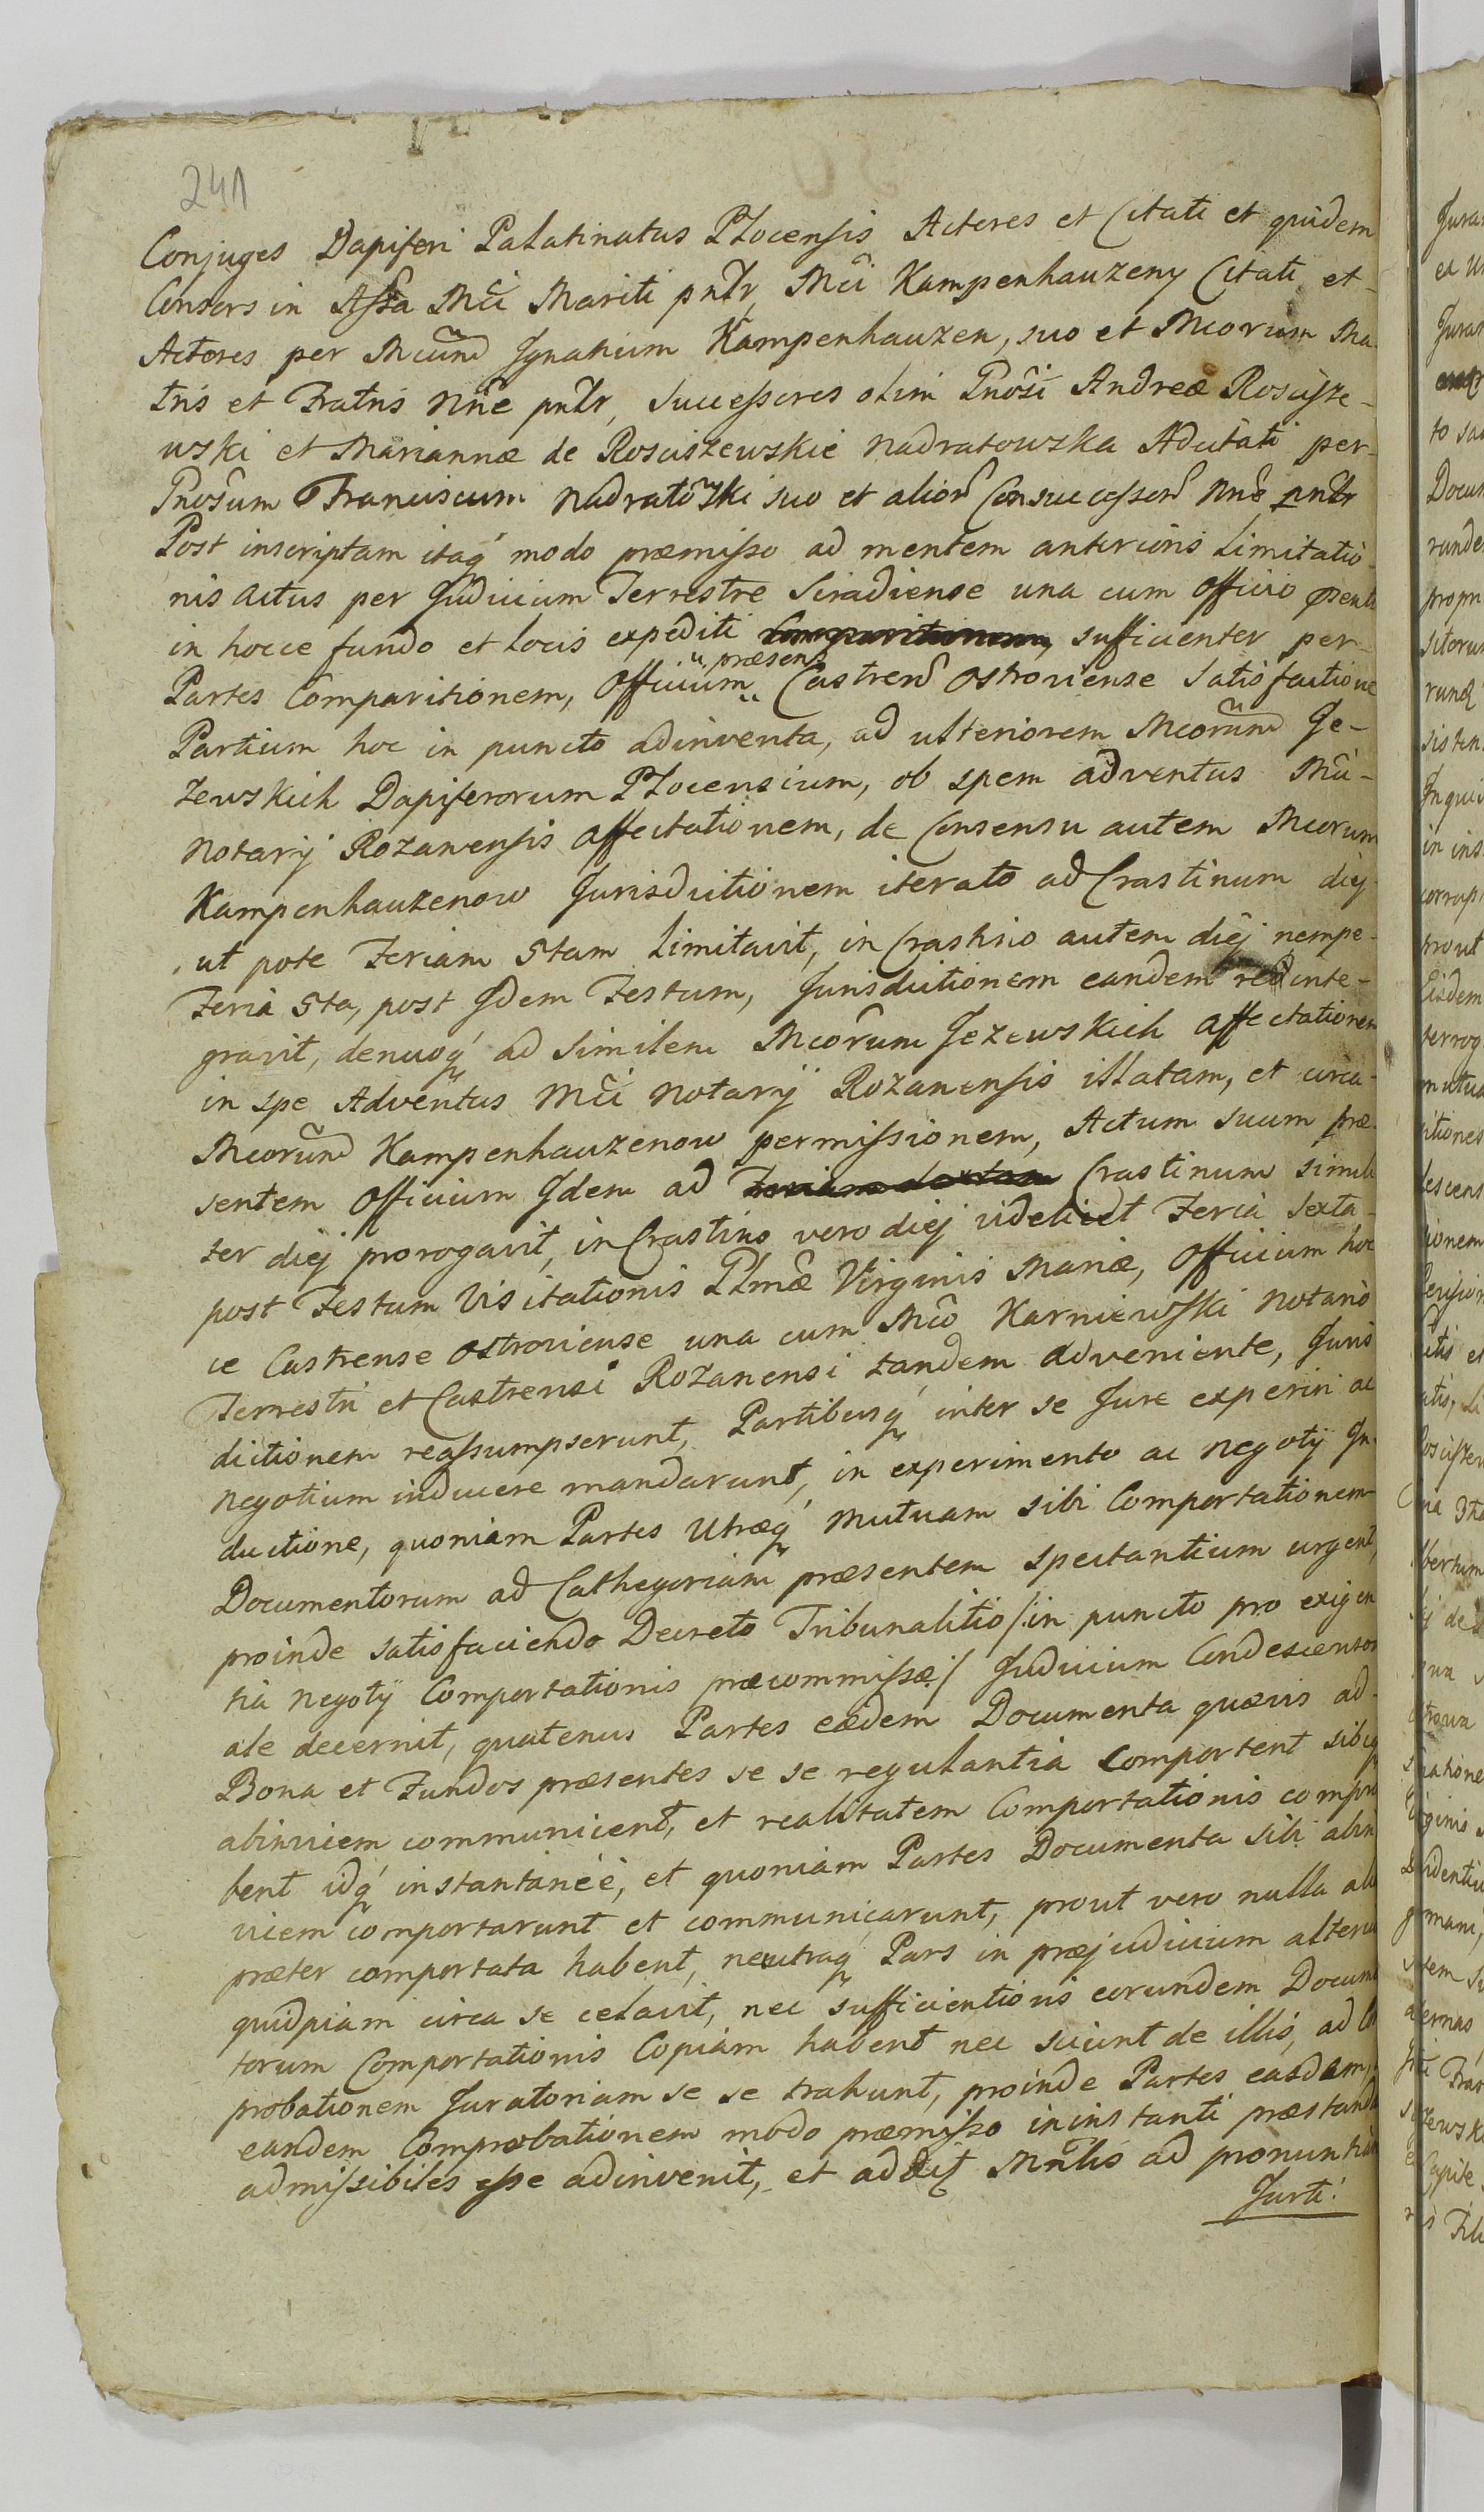 241
Conjuges Dapiferi Palatinatus Plocensis Actores et Citati et quidem
Consors in Assa Mci Mariti pntr, Mci Kampenhauzeny Citati et
Actores per Mcum Ignatium Kampenhauzen, suo et Mcorum Ma-
tris et Fratris Nne pntr, Successores olim Gnosi Andreæ Roscisze-
wski et Mariannæ de Rosciszewskie Nadratowska Adcitati per
Gnosum Franciscum Nadratowski suo et alior Consuccessor Nne pntr
Post inscriptam itaq modo præmisso ad mentem anterioris Limitatio-
nis actus per Judicium Terrestre Siradiense una cum Officio pnti
in hocce fundo et locis expediti Comparitionem, sufficienter per
præsens
Partes Comparitionem, Officium Castren Ostroviense Satisfactione
Partium hoc in puncto adinventa, ad ulteriorem Mcorum Je-
zewskich Dapiferorum Plocensium, ob spem adventus Mci
Notarij Rozanensis affectationem, de Consensu autem Mcorum
Kampenhauzenow Jurisdictionem iterato ad Crastinum diej
ut pote Feriam 5tam limitavit, in Crastino autem diej nempe
Feria 5ta, post Idem Festum, Jurisdictionem eandem redinte-
gravit, denuoq ad similem Mcorum Jezewskich affectationem
in spe Adventus Mci Notarij Rozanensis illatam, et circa
Mcorum Kampenhauzenow permissionem, Actum suum præ-
sentem Officium Idem ad Feriam sextam Crastinum simili
ter diej prorogavit, in Crastino vero diej videlicet Feria Sexta
post Festum Visitationis Plmæ Virginis Mariæ, Officium hoc
ce Castrense Ostroviense una cum Mco Karniewski Notario
Terrestri et Castrensi Rozanensi tandem adveniente, Juris
dictionem reassumpserunt, Partibusq inter se Jure experiri ac
negotium inducere mandarunt, in experimento ac negotij In-
ductione, quoniam Partes Utræq mutuam sibi Comportationem
Documentorum ad Cathegoriam præsentem spectantium urgent,
proinde satisfaciendo Decreto Tribunalitio /:in puncto pro exigen
tia negotij Comportationis præcommissæ:/ Judicium Condescenson
ale decernit, quatenus Partes eædem Documenta quævis ad
Bona et Fundos præsentes se se regulantia Comportent sibiq
abinvicem communicent, et realitatem Comportationis compro
bent idq instantanéé, et quoniam Partes Documenta sibi abin
vicem comportarunt et communicarunt, prout vero nulla alia
præter comportata habent, neutraq Pars in præjudicium alterius
quidpiam circa se celavit, nec sufficientioris eorundem Docum
torum Comportationis Copiam habent nec sciunt de illis, ad Com
probationem Juratoriam se se trahunt, proinde Partes easdem,
eandem Comprobationem modo præmisso in instanti præstand
admissibiles esse adinvenit, et addit Mntlis ad pronuntian
Jurti: